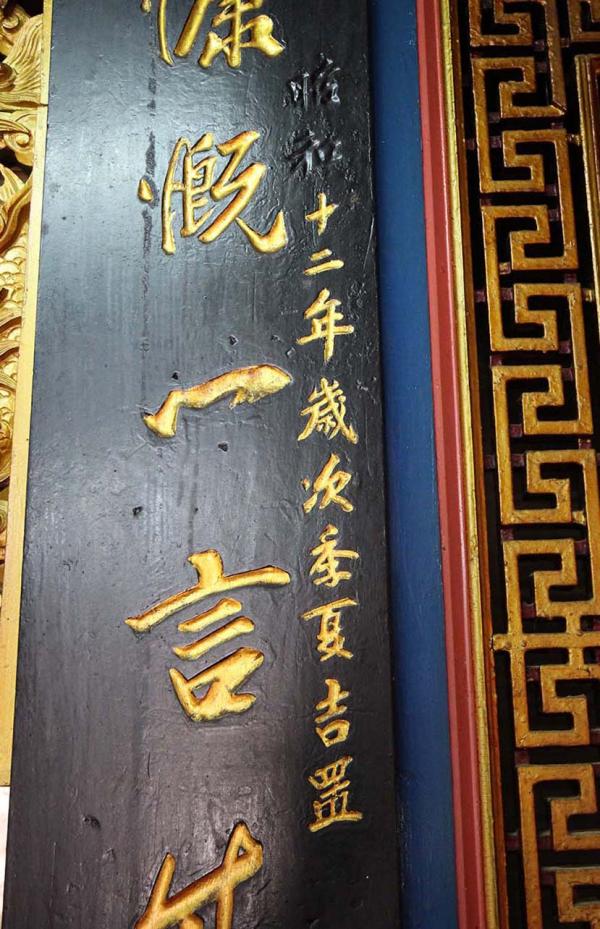 昭和十二年歲次季夏吉置
慷慨一言